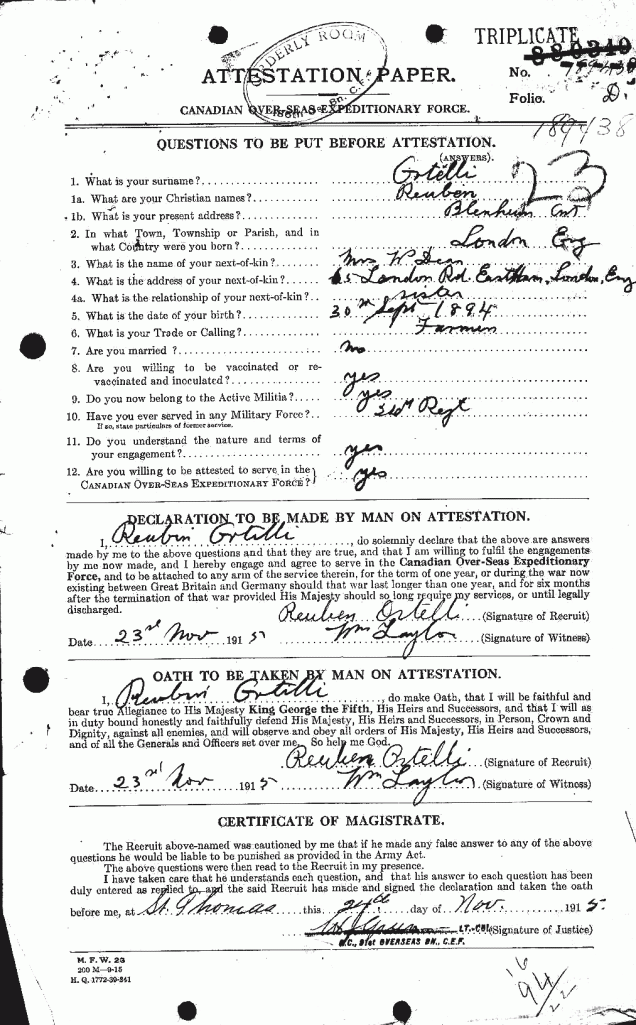 TRIPLICATE
ORDERLY ROOM
ATTESTATION PAPER.
No.
Folio. D.
CANADIAN OVER-SEAS EXPEDITIONARY FORCE.
189438
QUESTIONS TO BE PUT BEFORE ATTESTATION.
(ANSWERS).
23
1. What is your surname? Ortelli
1a. What are your Christian names? Reuben
1b. What is your present address? Blenheim Ont
2. In what Town, Township or Parish, and in
what Country were you born? London Eng
3. What is the name of your next-of-kin? Mrs W Dean
4. What is the address of your next-of-kin? 65 London Rd. East Ham, London, Eng
4a. What is the relationship of your next-of-kin? sister
5. What is the date of your birth? 30th Sept 1894
6. What is your Trade or Calling? Farmer
7. Are you married ? no
8. Are you willing to be vaccinated or re-
vaccinated and inoculated? yes
9. Do you now belong to the Active Militia? yes
10. Have you ever served in any Military Force? Regt
If so, state particulars of former service.
11. Do you understand the nature and terms of
your engagement? yes
12. Are you willing to be attested to serve in the
CANADIAN OVER-SEAS EXPEDITIONARY FORCE? yes
DECLARATION TO BE MADE BY MAN ON ATTESTATION.
I, Reubin Ortelli, do solemnly declare that the above are answers
made by me to the above questions and that they are true, and that I am willing to fulfil the engagements
by me now made, and I hereby engage and agree to serve in the Canadian Over-Seas Expeditionary
Force, and to be attached to any arm of the service therein, for the term of one year, or during the war now
existing between Great Britain and Germany should that war last longer than one year, and for six months
after the termination of that war provided His Majesty should so long require my services, or until legally
discharged.
Reuben Ortelli (Signature of Recruit)
Date 23rd Nov 1915 Wm Laylor (Signature of Witness)
OATH TO BE TAKEN BY MAN ON ATTESTATION.
I, Reubin Ortelli, do make Oath, that I will be faithful and
bear true Allegiance to His Majesty King George the Fifth, His Heirs and Successors, and that I will as
in duty bound honestly and faithfully defend His Majesty, His Heirs and Successors, in Person, Crown and
Dignity, against all enemies, and will observe and obey all orders of His Majesty, His Heirs and Successors,
and of all the Generals and Officers set over me. So help me God.
Reuben Ortelli (Signature of Recruit)
Date 23rd Nov 1915 Wm Laylor (Signature of Witness)
CERTIFICATE OF MAGISTRATE.
The Recruit above-named was cautioned by me that if he made any false answer to any of the above
questions he would be liable to be punished as provided in the Army Act.
The above questions were then read to the Recruit in my presence.
I have taken care that he understands each question, and that his answer to each question has been
duly entered as replied to, and the said Recruit has made and signed the declaration and taken the oath
before me, at St. Thomas this 24th day of Nov. 1915.
LT.-COL. (Signature of Justice)
O.C., 91st OVERSEAS BN., C.E.F.
M. F. W. 23
200 M—9-15
H. Q. 1772-39-841
16
94/22